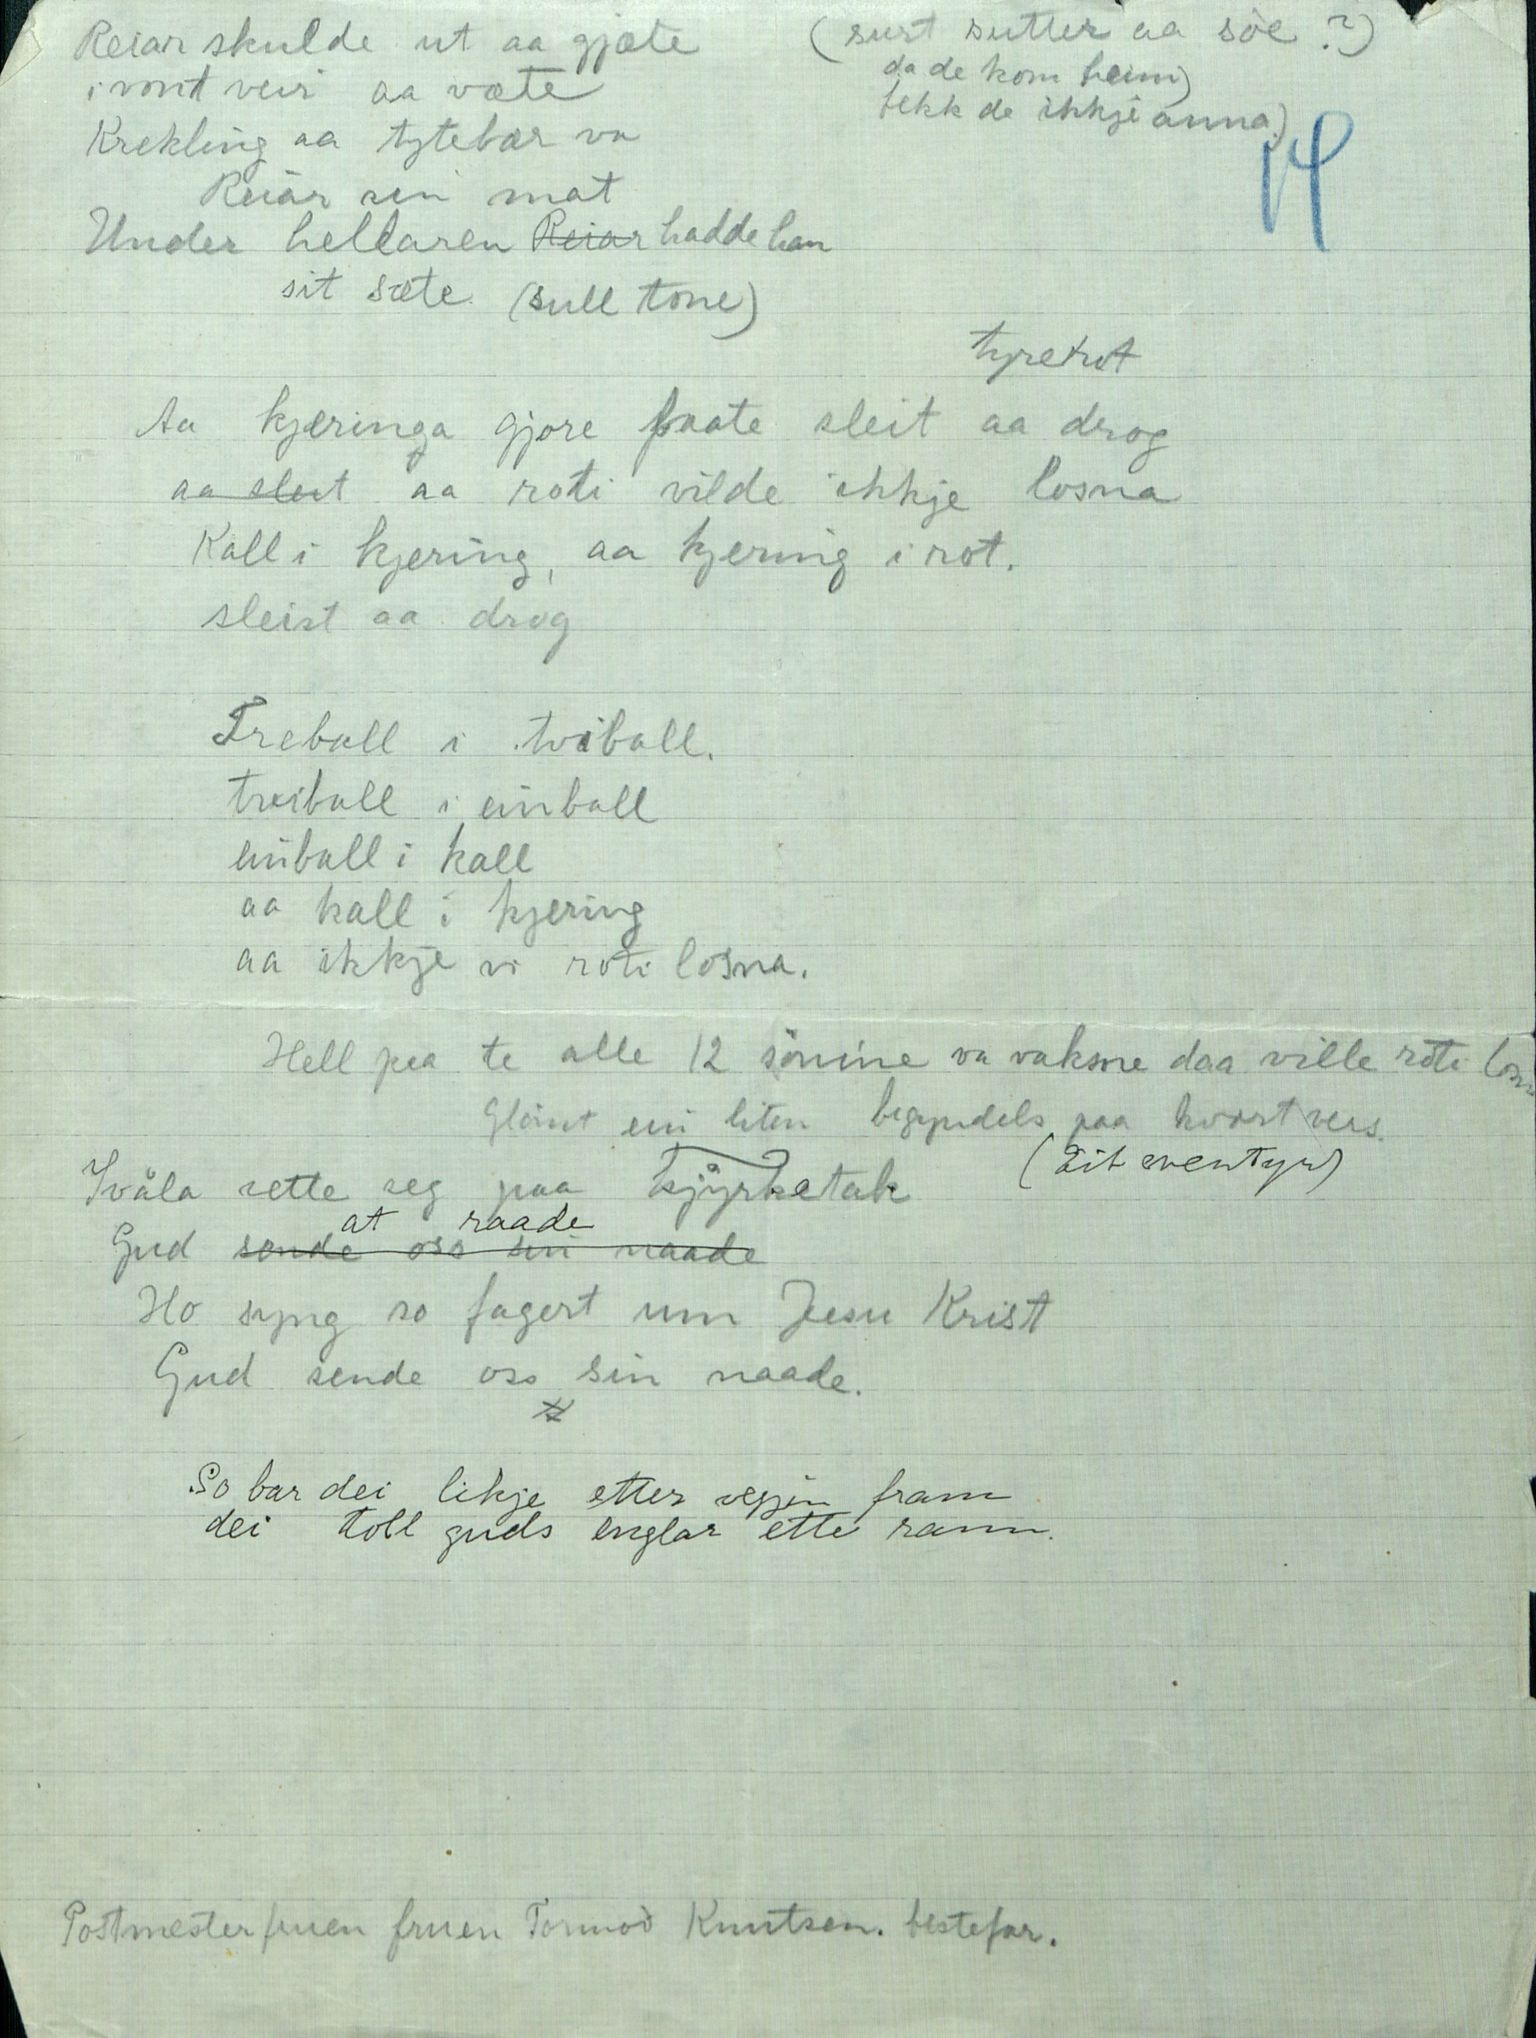 Reiar skulde ut aa gjæte
i vont veir aa væte
Krekling aa tytebær va
Reiar sin mat
Under hellaren Reiar hadde han
sit sæte. (sull tone)
(surt sutter aa söe?)
da de kom heim)
fekk de ikkje anna.)
14
tyrerot
Aa kjeringa gjore paate sleit aa drog
aa sleit aa roti vilde ikkje losna
Kall i kjering, aa kjering i rot.
sleist aa drog
Treball i tviball.
tveiball i einball
einball i kall
aa kall i kjering
aa ikkje vi roti losna.
Hell paa te alle 12 sönine va vaksne daa ville roti losna
Glöimt ein liten begyndels paa kvart vers.
(Eit eventyr)
Svåla sette seg paa kjyrketak
at raade
Gud sende oss sin naade
Ho syng so fagert um Jesu Krist
Gud sende oss sin naade.
So bar dei likje etter vegjin fram
dei toll guds englar ette rann.
Postmesterfruen fruen Tormod Knutsen. bestefar.